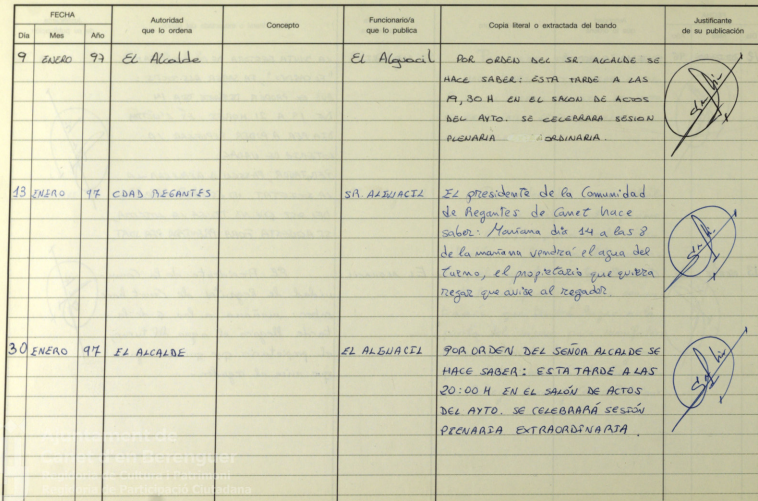 FECHA
Día Mes Año
Autoridad
que lo ordena
Concepto
Funcionario/a
que lo publica
Copia literal o extractada del bando
Justificante
de su publicación
9 ENERO 97 El Alcalde El Alguacil POR ORDEN DEL SR. ALCALDE SE
HACE SABER: ESTA TARDE A LAS
19,30 H EN EL SALON DE ACTOS
DEL AYTO. SE CELEBRARA SESION
PLENARIA ORDINARIA.
13 ENERO 97 CDAD REGANTES SR. ALGUACIL El presidente de la Comunidad
de Regantes de Canet hace
saber: Mañana día 14 a las 8
de la mañana vendrá el agua del
turno, el propietario que quiera
regar que avise al regador.
30 ENERO 97 EL ALCALDE EL ALGUACIL POR ORDEN DEL SEÑOR ALCALDE SE
HACE SABER: ESTA TARDE A LAS
20:00 H EN EL SALÓN DE ACTOS
DEL AYTO. SE CELEBRARÁ SESIÓN
PLENARIA EXTRAORDINARIA.
Ajuntament de
Canet d'en Berenguer
Regidoria de Cultura i Patrimoni
Regidoria de Participació Ciutadana